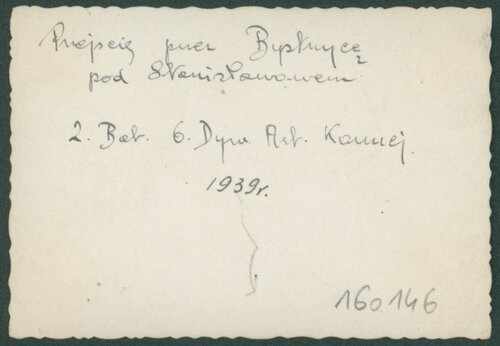 Przejście przez Bystrzycę
pod Stanisławowem
2. Bat. 6. Dyw. Art. Konnej.
1939r.
160146